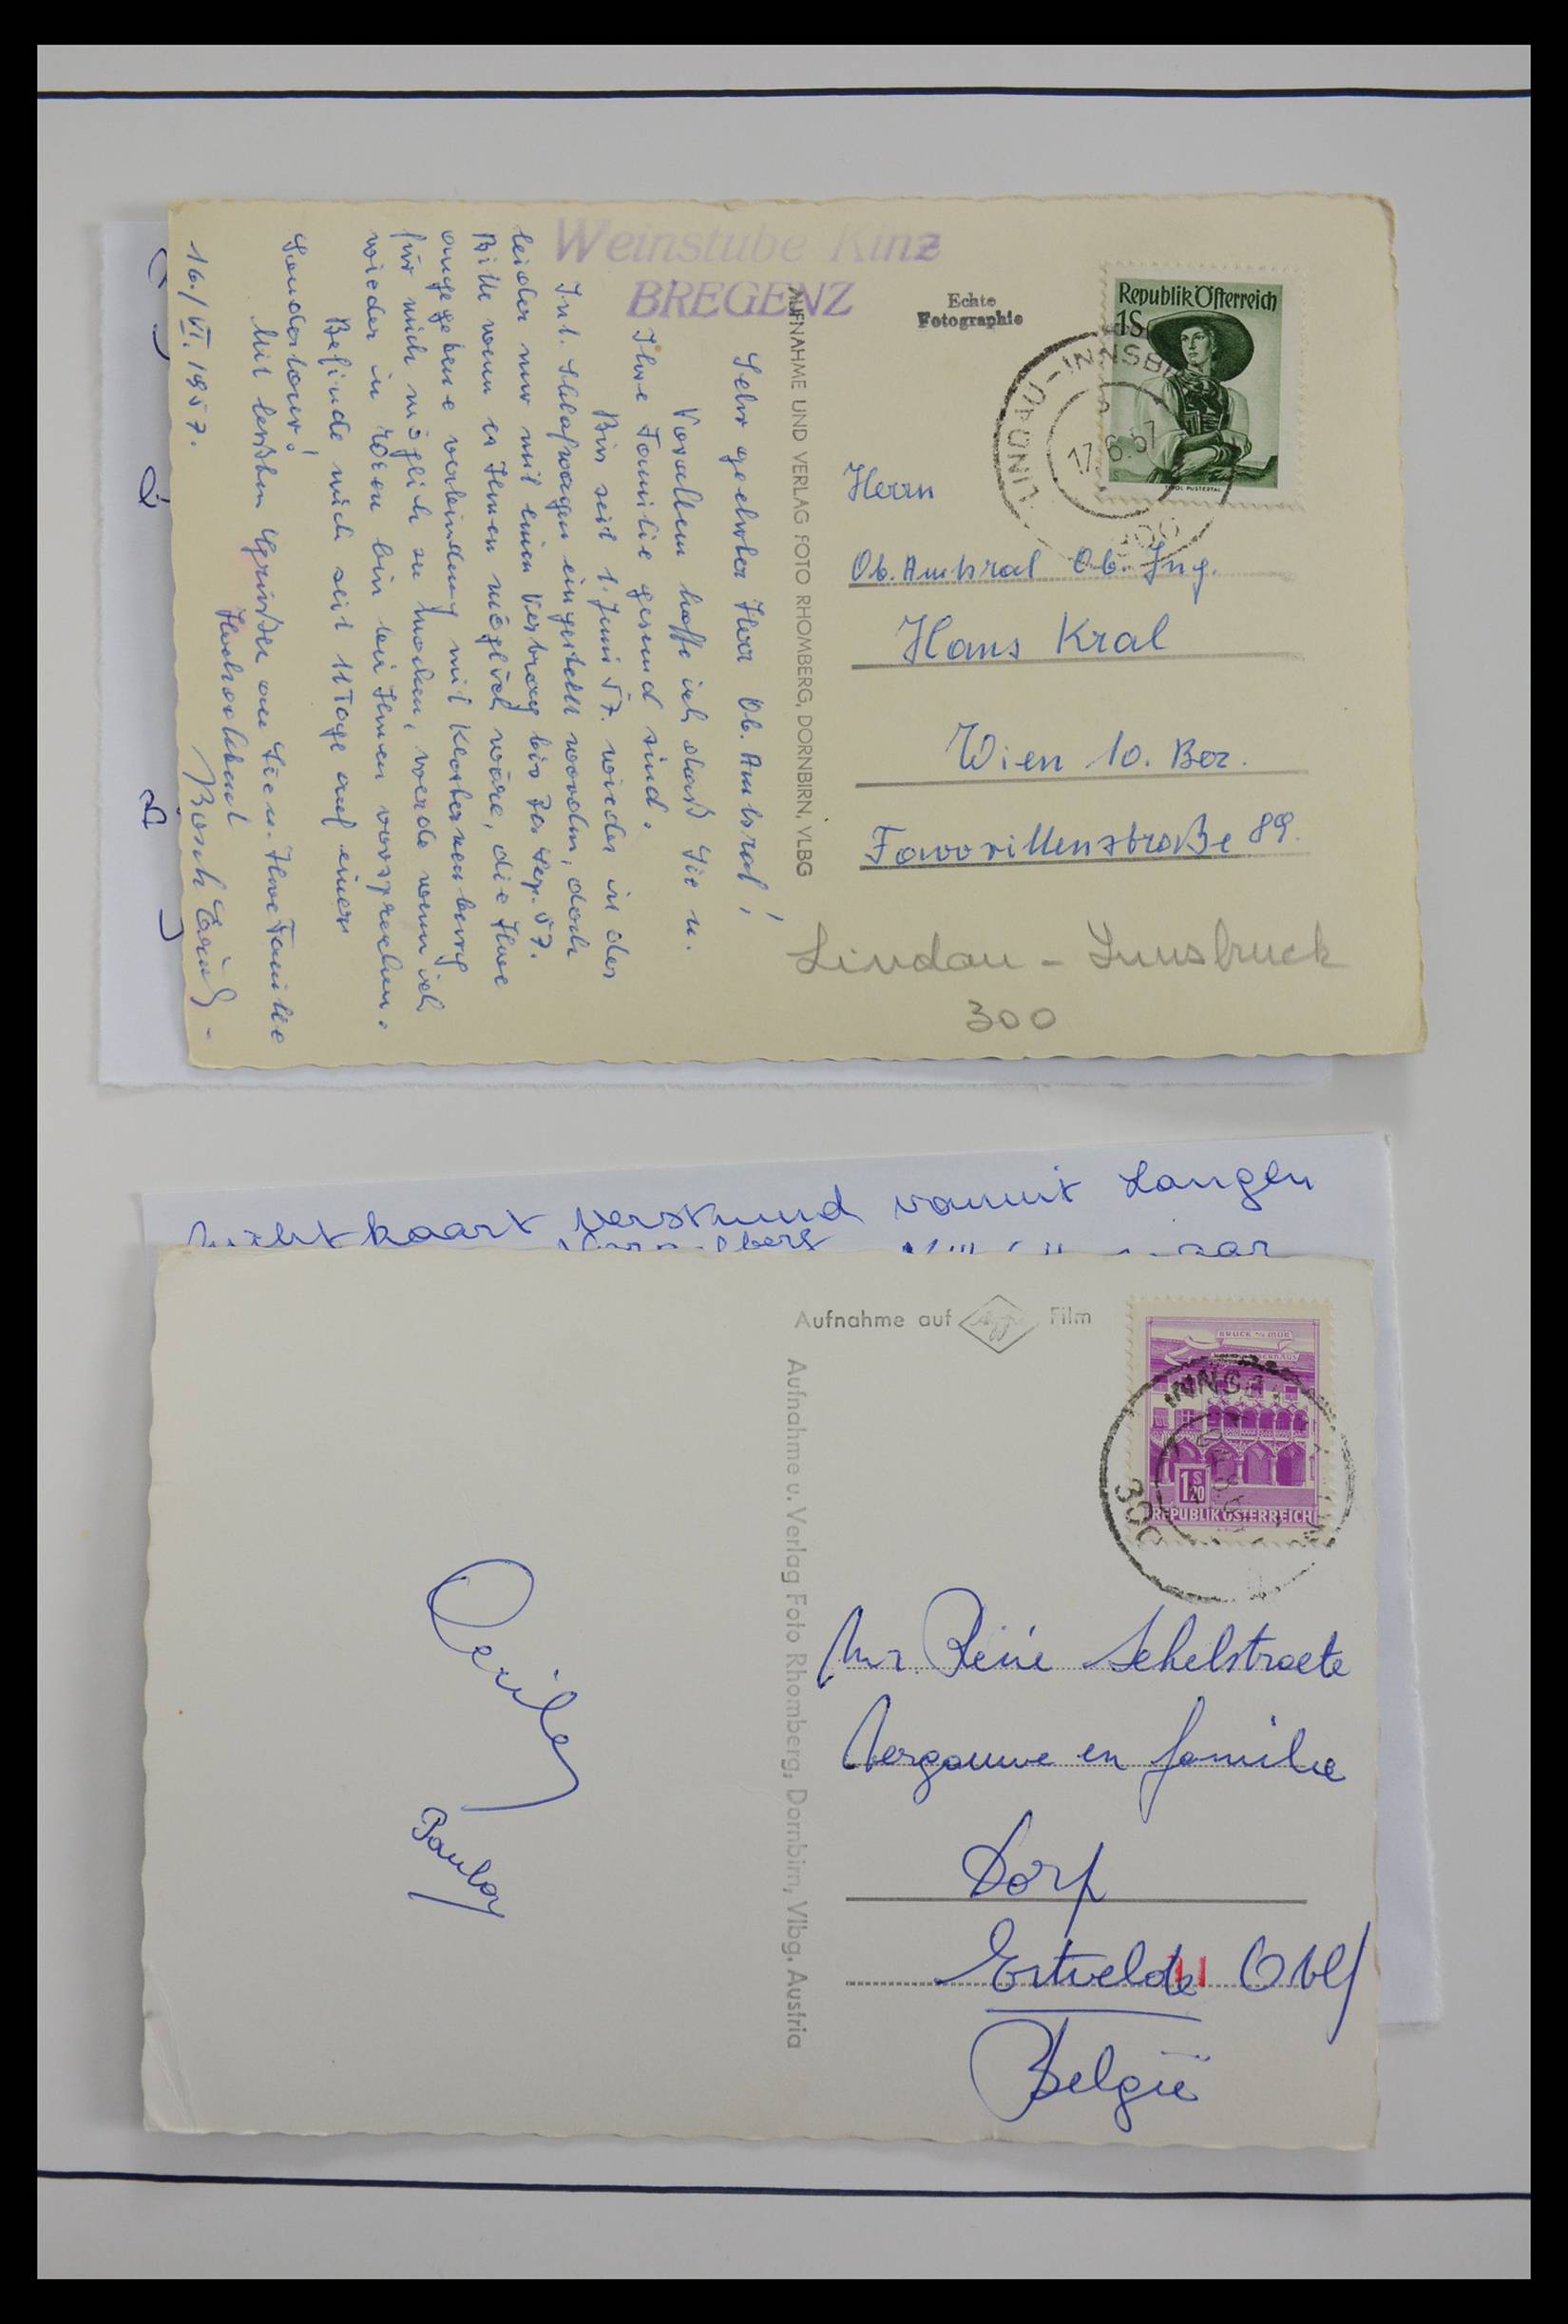 Weinstube Kinz
BREGENZ
Echte
Fotographie
Republik Österreich
1S
TIROL PUSTERTAL
LINDAU-INNSB
17.6.57
300
AUFNAHME UND VERLAG FOTO RHOMBERG, DORNBIRN, VLBG
Sehr geehrter Herr Ob. Amtsrat!
Vorallem hoffe ich daß Sie u.
Ihre Familie gesund sind.
Bin seit 1. Juni 57. wieder in der
Int. Schlafwagen eingestellt worden, doch
leider nur mit einen Vertrag bis 30. Sep. 57.
Bitte wenn es Ihnen möglich wäre, die Ihre
angegebene verbindung mit Klosterneuburg
für mich möglich zu machen, werde wenn ich
wieder in Wien bin bei Ihnen vorsprechen.
Befinde mich seit 11 Tage auf einer
Sondertour!
Mit besten Grüßen an Sie u. Ihre Familie
Hochachtend
16./VI. 1957.
Herrn
Ob. Amtsrat Ob. Ing.
Hans Kral
Wien 10. Bez.
Favoritenstraße 89.
Lindau - Innsbruck
300
verstuurd vanuit Langen
naar
Aufnahme auf Agfa Film
BRUCK a/d MUR
1 S 20
REPUBLIK ÖSTERREICH
INNSB
300
Aufnahme u. Verlag Foto Rhomberg, Dornbirn, Vlbg. Austria
Mr. René Schelstraete
Vergauwe en familie
Dorp
Ertvelde O Vl
België